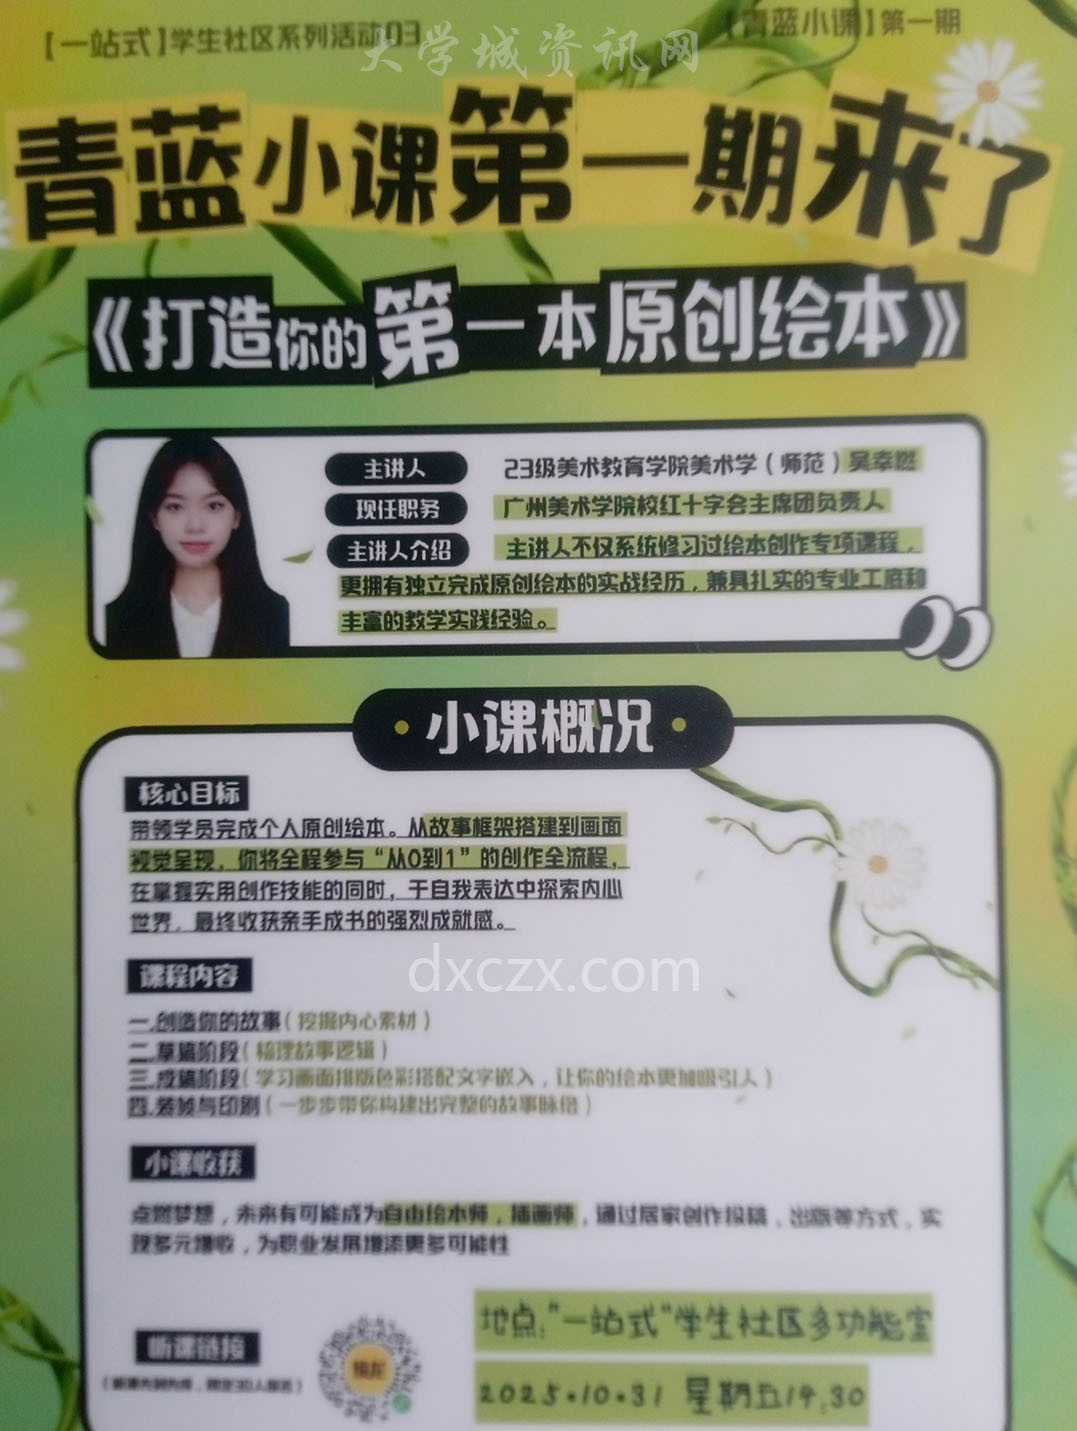 【一站式】学生社区系列活动03
【青蓝小课】第一期
大学城资讯网
青蓝小课第一期来了
《打造你的第一本原创绘本》
主讲人 23级美术教育学院美术学（师范）吴幸燃
现任职务 广州美术学院校红十字会主席团负责人
主讲人介绍 主讲人不仅系统修习过绘本创作专项课程，
更拥有独立完成原创绘本的实战经历，兼具扎实的专业工底和
丰富的教学实践经验。
小课概况
核心目标
带领学员完成个人原创绘本。从故事框架搭建到画面
视觉呈现，你将全程参与“从0到1”的创作全流程，
在掌握实用创作技能的同时，于自我表达中探索内心
世界，最终收获亲手成书的强烈成就感。
dxczx.com
课程内容
一.创造你的故事（挖掘内心素材）
二.草稿阶段（梳理故事逻辑）
三.成稿阶段（学习画面排版色彩搭配文字嵌入，让你的绘本更加吸引人）
四.装帧与印刷（一步步带你构建出完整的故事脉络）
小课收获
点燃梦想，未来有可能成为自由绘本师，插画师，通过居家创作投稿，出版等方式，实
现多元增收，为职业发展增添更多可能性
地点:"一站式"学生社区多功能室
听课链接
2025.10.31 星期五19:30